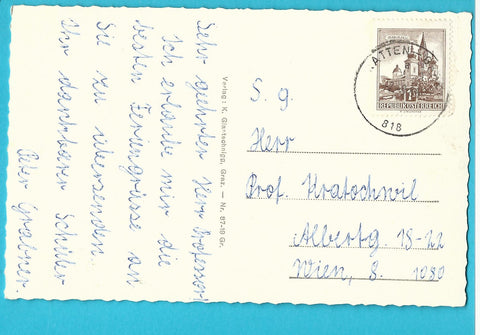 Sehr geehrter Herr Professor
Ich erlaube mir die
besten Feriengrüsse an
Sie zu übersenden.
Ihr dankbarer Schüler
Peter
Verlag: K. Graz. — Nr. 87-19 Gr.
S. g.
Herr
Prof. Kratochwil
Albertg. 18-22
Wien, 8. 1080
REPUBLIK ÖSTERREICH
818